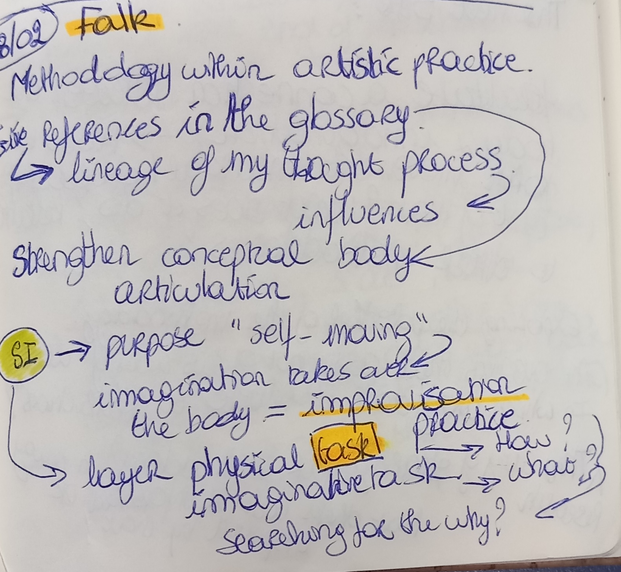 8/02 Falk
Methodology within artistic practice.
references in the glossary
↳ lineage of my thought process
influences
Strengthen conceptual body
articulation
SI → purpose "self-moving"
imagination takes over
the body = improvisation
practice
layer physical task → How?
imaginative task. → what?
searching for the why?